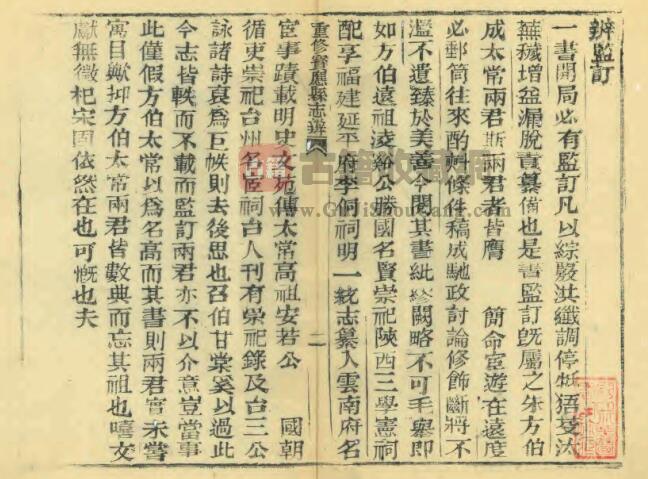 辨監訂
一書開局必有監訂凡以綜嚴洪纖調停牴牾芟汰
蕪穢增益漏脫責纂脩也是書監訂旣屬之朱方伯
成太常兩君斯兩君者皆膺 簡命宦遊在遠度
必郵筒往來酌斠條件稿成馳政討論修飾斷將不
濫不遺臻於美善今閱其書紕繆闕略不可毛舉卽
如方伯遠祖淩谿公勝國名賢崇祀陝西三學憲祠
配享福建延平府李侗祠明一統志纂入雲南府名
重修寶應縣志辨
二
宦事蹟載明史文苑傳太常高祖安若公 國朝
循吏崇祀台州名宦祠台人刊有崇祀錄及台三公
詠諸詩裒爲巨帙則去後思也召伯甘棠奚以過此
今志皆軼而不載而監訂兩君亦不以介意豈當事
此僅假方伯太常以爲名高而其書則兩君實未嘗
寓目歟抑方伯太常兩君皆數典而忘其祖也嘻文
獻無徵杞宋固依然在也可慨也夫
古籍收藏网